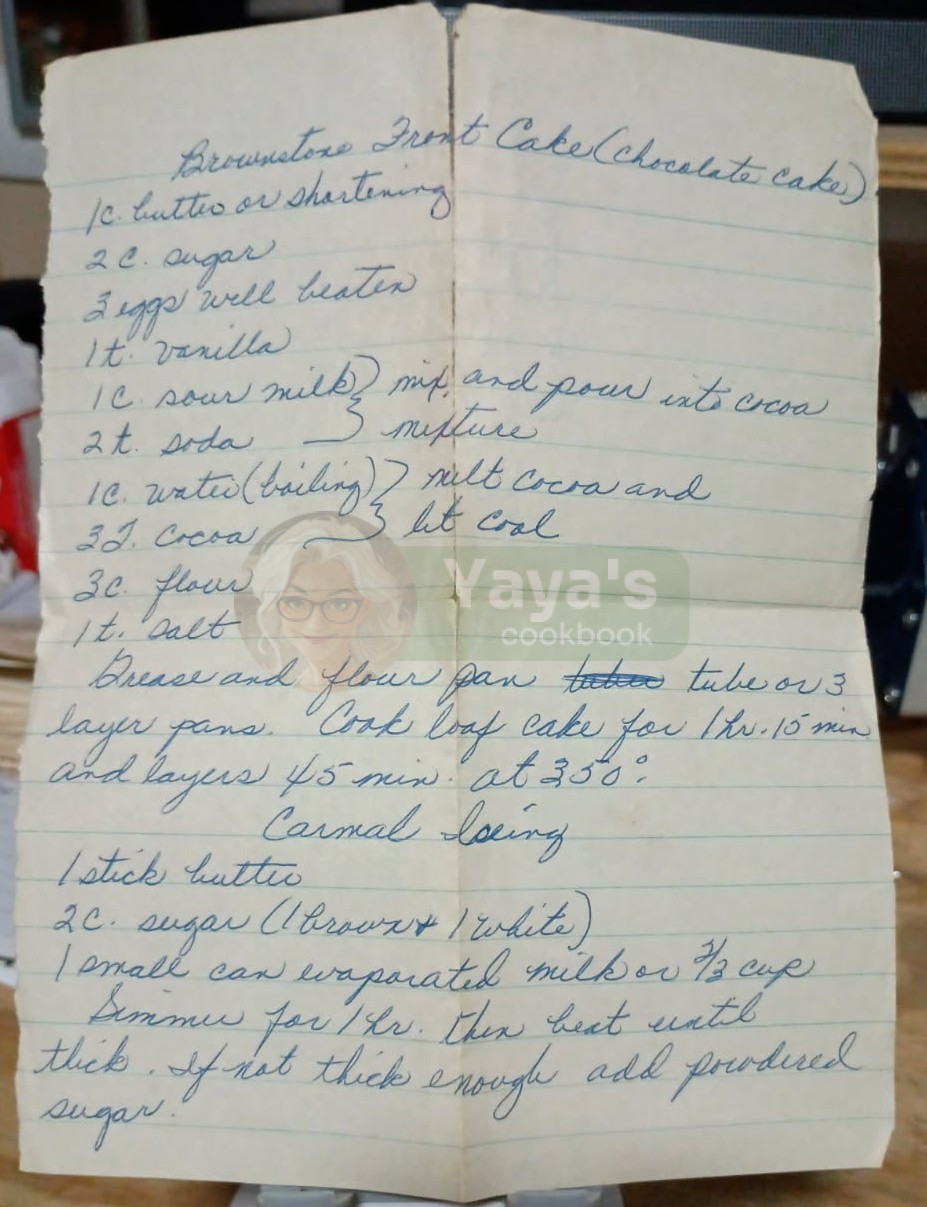 Brownstone Front Cake (chocolate cake)
1c. butter or shortening
2 c. sugar
3 eggs well beaten
1 t. vanilla
1 c. sour milk } mix and pour into cocoa
2 t. soda } mixture
1c. water (boiling) } melt cocoa and
3 T. cocoa } let cool
3c. flour
1 t. salt
Grease and flour pan tube or 3
layer pans. Cook loaf cake for 1 hr. 15 min
and layers 45 min. at 350°.
Carmal Icing
1 stick butter
2c. sugar (1 brown & 1 white)
1 small can evaporated milk or 2/3 cup
Simmer for 1 hr. then beat until
thick. If not thick enough add powdered
sugar.
Yaya's
cookbook